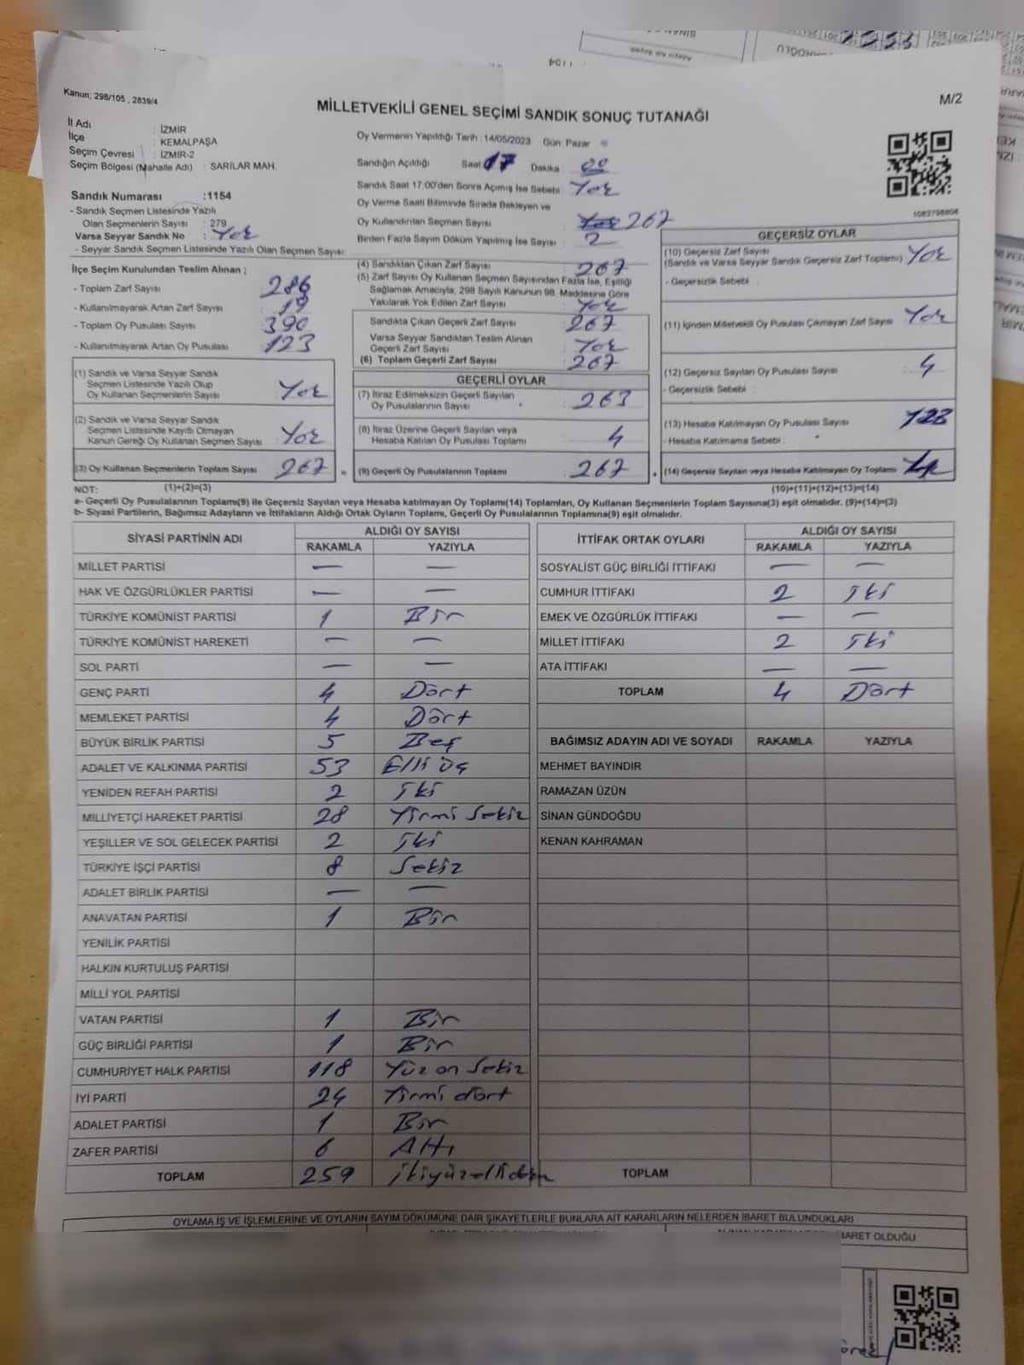 Kanun; 298/105 , 2839/4
M/2
MİLLETVEKİLİ GENEL SEÇİMİ SANDIK SONUÇ TUTANAĞI
İl Adı : İZMİR
İlçe : KEMALPAŞA
Seçim Çevresi : İZMİR-2
Seçim Bölgesi (Mahalle Adı) : SARILAR MAH.
Oy Vermenin Yapıldığı Tarih :14/05/2023 Gün Pazar
Sandığın Açıldığı Saat 17 Dakika 00
Sandık Saat 17:00'den Sonra Açılmış İse Sebebi Yok
Oy Verme Saati Bitiminde Sırada Bekleyen ve
Oy Kullandırılan Seçmen Sayısı 267
Birden Fazla Sayım Döküm Yapılmış İse Sayısı 2
Sandık Numarası :1154
- Sandık Seçmen Listesinde Yazılı
Olan Seçmenlerin Sayısı : 279
Varsa Seyyar Sandık No : Yok
- Seyyar Sandık Seçmen Listesinde Yazılı Olan Seçmen Sayısı:
İlçe Seçim Kurulundan Teslim Alınan ;
- Toplam Zarf Sayısı 286
- Kullanılmayarak Artan Zarf Sayısı 19
- Toplam Oy Pusulası Sayısı 390
- Kullanılmayarak Artan Oy Pusulası 123
(1) Sandık ve Varsa Seyyar Sandık
Seçmen Listesinde Yazılı Olup
Oy Kullanan Seçmenlerin Sayısı Yok
(2) Sandık ve Varsa Seyyar Sandık
Seçmen Listesinde Kayıtlı Olmayan
Kanun Gereği Oy Kullanan Seçmen Sayısı Yok
(3) Oy Kullanan Seçmenlerin Toplam Sayısı 267
(1)+(2)=(3)
(4) Sandıktan Çıkan Zarf Sayısı 267
(5) Zarf Sayısı Oy Kullanan Seçmen Sayısından Fazla İse, Eşitliği
Sağlamak Amacıyla, 298 Sayılı Kanunun 98. Maddesine Göre
Yakılarak Yok Edilen Zarf Sayısı Yok
Sandıkta Çıkan Geçerli Zarf Sayısı 267
Varsa Seyyar Sandıktan Teslim Alınan
Geçerli Zarf Sayısı Yok
(6) Toplam Geçerli Zarf Sayısı 267
GEÇERLİ OYLAR
(7) İtiraz Edilmeksizin Geçerli Sayılan
Oy Pusulalarının Sayısı 263
(8) İtiraz Üzerine Geçerli Sayılan veya
Hesaba Katılan Oy Pusulası Toplamı 4
(9) Geçerli Oy Pusulalarının Toplamı 267
GEÇERSİZ OYLAR
(10) Geçersiz Zarf Sayısı
(Sandık ve Varsa Seyyar Sandık Geçersiz Zarf Toplamı) Yok
- Geçersizlik Sebebi :
(11) İçinden Milletvekili Oy Pusulası Çıkmayan Zarf Sayısı Yok
(12) Geçersiz Sayılan Oy Pusulası Sayısı 4
- Geçersizlik Sebebi :
(13) Hesaba Katılmayan Oy Pusulası Sayısı
- Hesaba Katılmama Sebebi :
(14) Geçersiz Sayılan veya Hesaba Katılmayan Oy Toplamı
(10)+(11)+(12)+(13)=(14)
NOT:
a- Geçerli Oy Pusulalarının Toplamı(9) ile Geçersiz Sayılan veya Hesaba katılmayan Oy Toplamı(14) Toplamları, Oy Kullanan Seçmenlerin Toplam Sayısına(3) eşit olmalıdır. (9)+(14)=(3)
b- Siyasi Partilerin, Bağımsız Adayların ve İttifakların Aldığı Ortak Oyların Toplamı, Geçerli Oy Pusulalarının Toplamına(9) eşit olmalıdır.
SİYASİ PARTİNİN ADI ALDIĞI OY SAYISI
RAKAMLA YAZIYLA
MİLLET PARTİSİ — —
HAK VE ÖZGÜRLÜKLER PARTİSİ — —
TÜRKİYE KOMÜNİST PARTİSİ 1 Bir
TÜRKİYE KOMÜNİST HAREKETİ — —
SOL PARTİ — —
GENÇ PARTİ 4 Dört
MEMLEKET PARTİSİ 4 Dört
BÜYÜK BİRLİK PARTİSİ 5 Beş
ADALET VE KALKINMA PARTİSİ 53 Elli üç
YENİDEN REFAH PARTİSİ 2 İki
MİLLİYETÇİ HAREKET PARTİSİ 28 Yirmi Sekiz
YEŞİLLER VE SOL GELECEK PARTİSİ 2 İki
TÜRKİYE İŞÇİ PARTİSİ 8 Sekiz
ADALET BİRLİK PARTİSİ — —
ANAVATAN PARTİSİ 1 Bir
YENİLİK PARTİSİ
HALKIN KURTULUŞ PARTİSİ
MİLLİ YOL PARTİSİ
VATAN PARTİSİ 1 Bir
GÜÇ BİRLİĞİ PARTİSİ 1 Bir
CUMHURİYET HALK PARTİSİ 118 Yüz on Sekiz
İYİ PARTİ 24 Yirmi dört
ADALET PARTİSİ 1 Bir
ZAFER PARTİSİ 6 Altı
TOPLAM 259
İTTİFAK ORTAK OYLARI ALDIĞI OY SAYISI
RAKAMLA YAZIYLA
SOSYALİST GÜÇ BİRLİĞİ İTTİFAKI — —
CUMHUR İTTİFAKI 2 İki
EMEK VE ÖZGÜRLÜK İTTİFAKI — —
MİLLET İTTİFAKI 2 İki
ATA İTTİFAKI — —
TOPLAM 4 Dört
BAĞIMSIZ ADAYIN ADI VE SOYADI RAKAMLA YAZIYLA
MEHMET BAYINDIR
RAMAZAN ÜZÜN
SİNAN GÜNDOĞDU
KENAN KAHRAMAN
TOPLAM
OYLAMA İŞ VE İŞLEMLERİNE VE OYLARIN SAYIM DÖKÜMÜNE DAİR ŞİKAYETLERLE BUNLARA AİT KARARLARIN NELERDEN İBARET BULUNDUKLARI
İBARET OLDUĞU